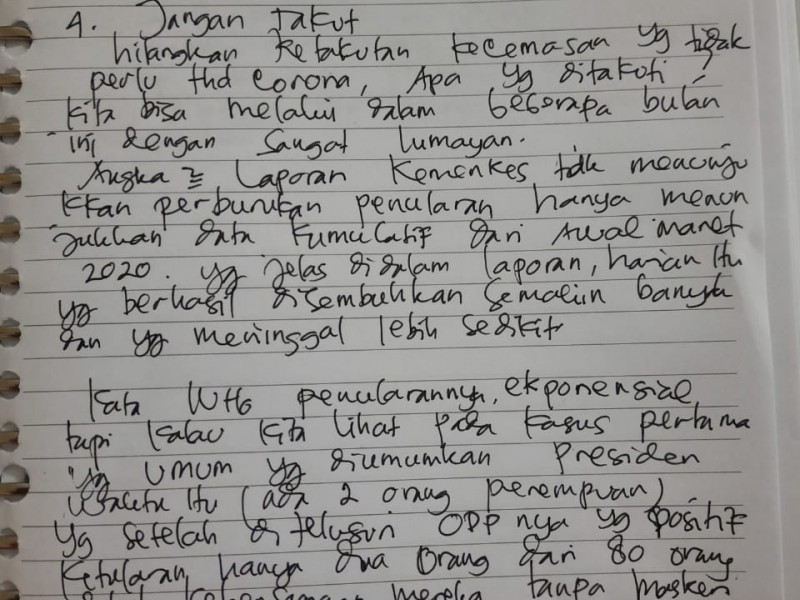 4. Jangan Takut
hilangkan ketakutan kecemasan yg tidak
perlu thd corona, Apa yg ditakuti?
kita bisa melalui dalam beberapa bulan
ini dengan sangat lumayan.
Angka ≥ Laporan Kemenkes tdk menunju
kkan perburukan penularan hanya menun
jukkan data kumulatif dari Awal maret
2020. yg jelas didalam laporan, harian itu
yg berhasil disembuhkan semakin banyak
dan yg meninggal lebih sedikit
kata WHO penularannya, ekponensial
tapi kalau kita lihat pada kasus pertama
yg umum yg diumumkan Presiden
waktu itu (ada 2 orang perempuan)
yg setelah ditelusuri ODP nya yg positif
ketularan hanya dua orang dari 80 orang
mereka tanpa masker